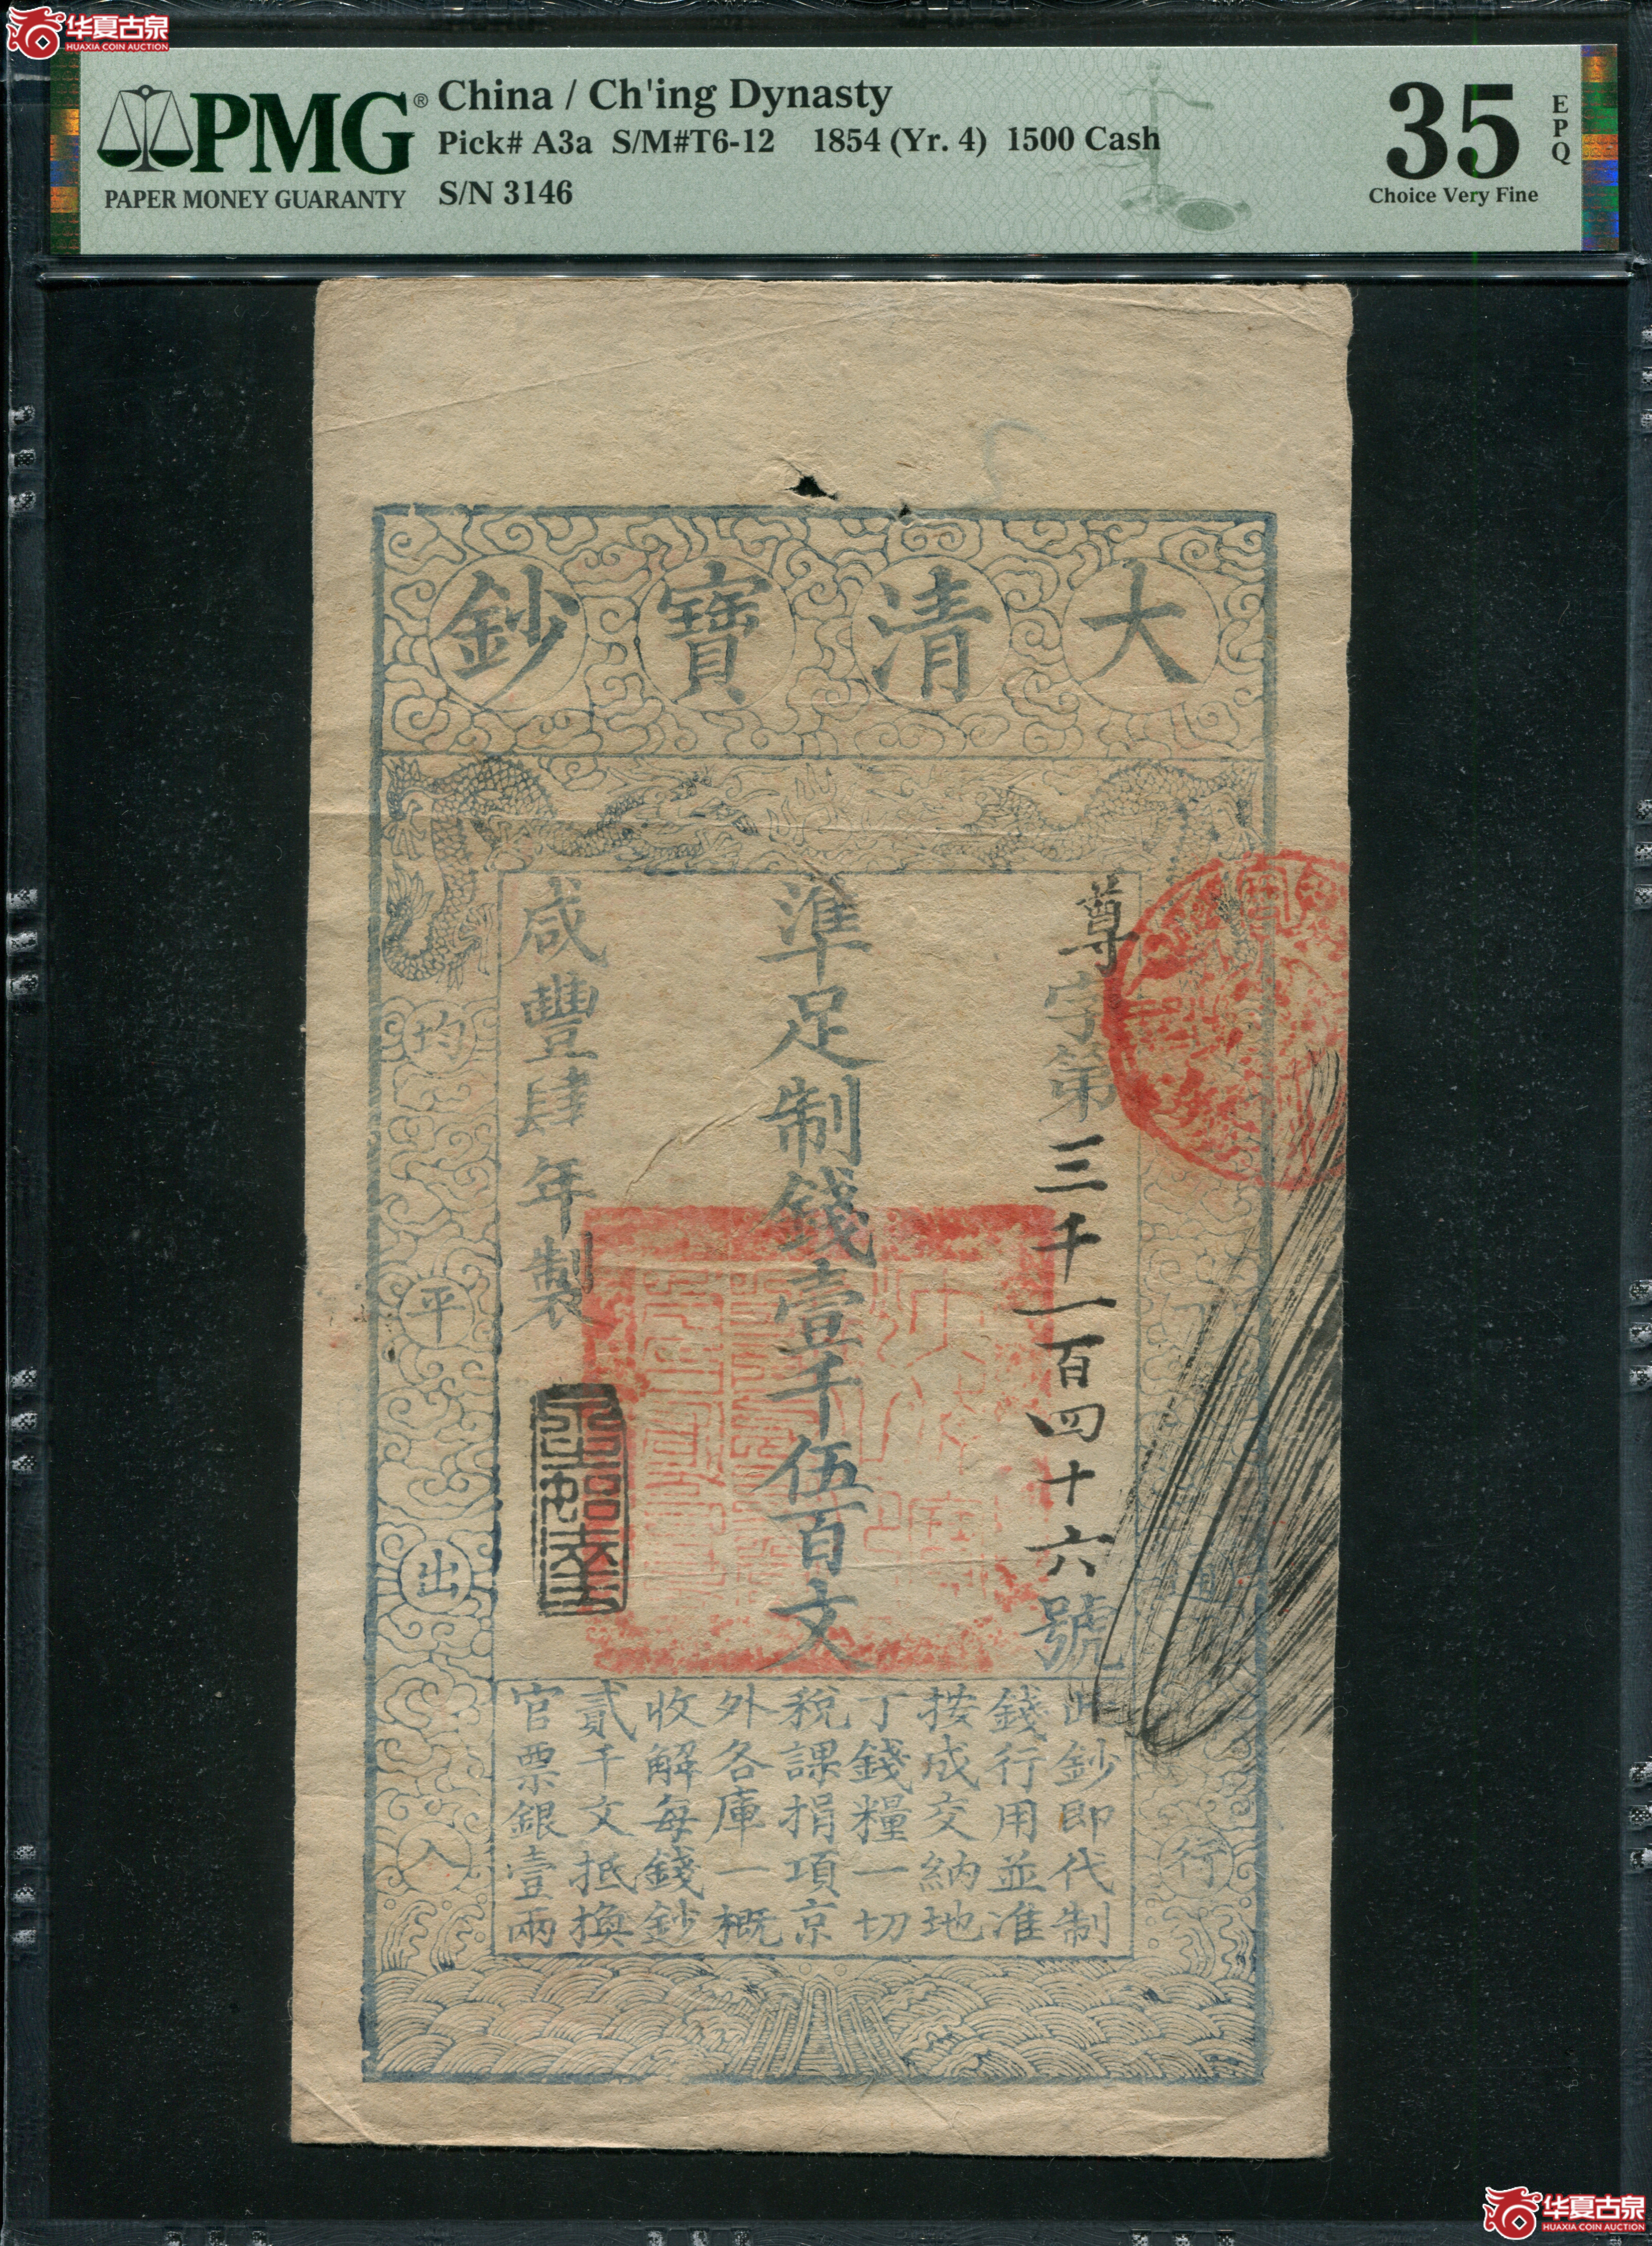 华夏古泉
HUAXIA COIN AUCTION
PMG®
PAPER MONEY GUARANTY
China / Ch'ing Dynasty
Pick# A3a S/M#T6-12 1854 (Yr. 4) 1500 Cash
S/N 3146
35
Choice Very Fine
EPQ
大清寶鈔
尊字第三千一百四十六號
準足制錢壹千伍百文
咸豐肆年製
行
均平出入
此鈔即代制
錢行用並准
按成交納地
丁錢糧一切
稅課捐項京
外各庫一概
收解每錢鈔
貳千文抵換
官票銀壹兩
华夏古泉
HUAXIA COIN AUCTION